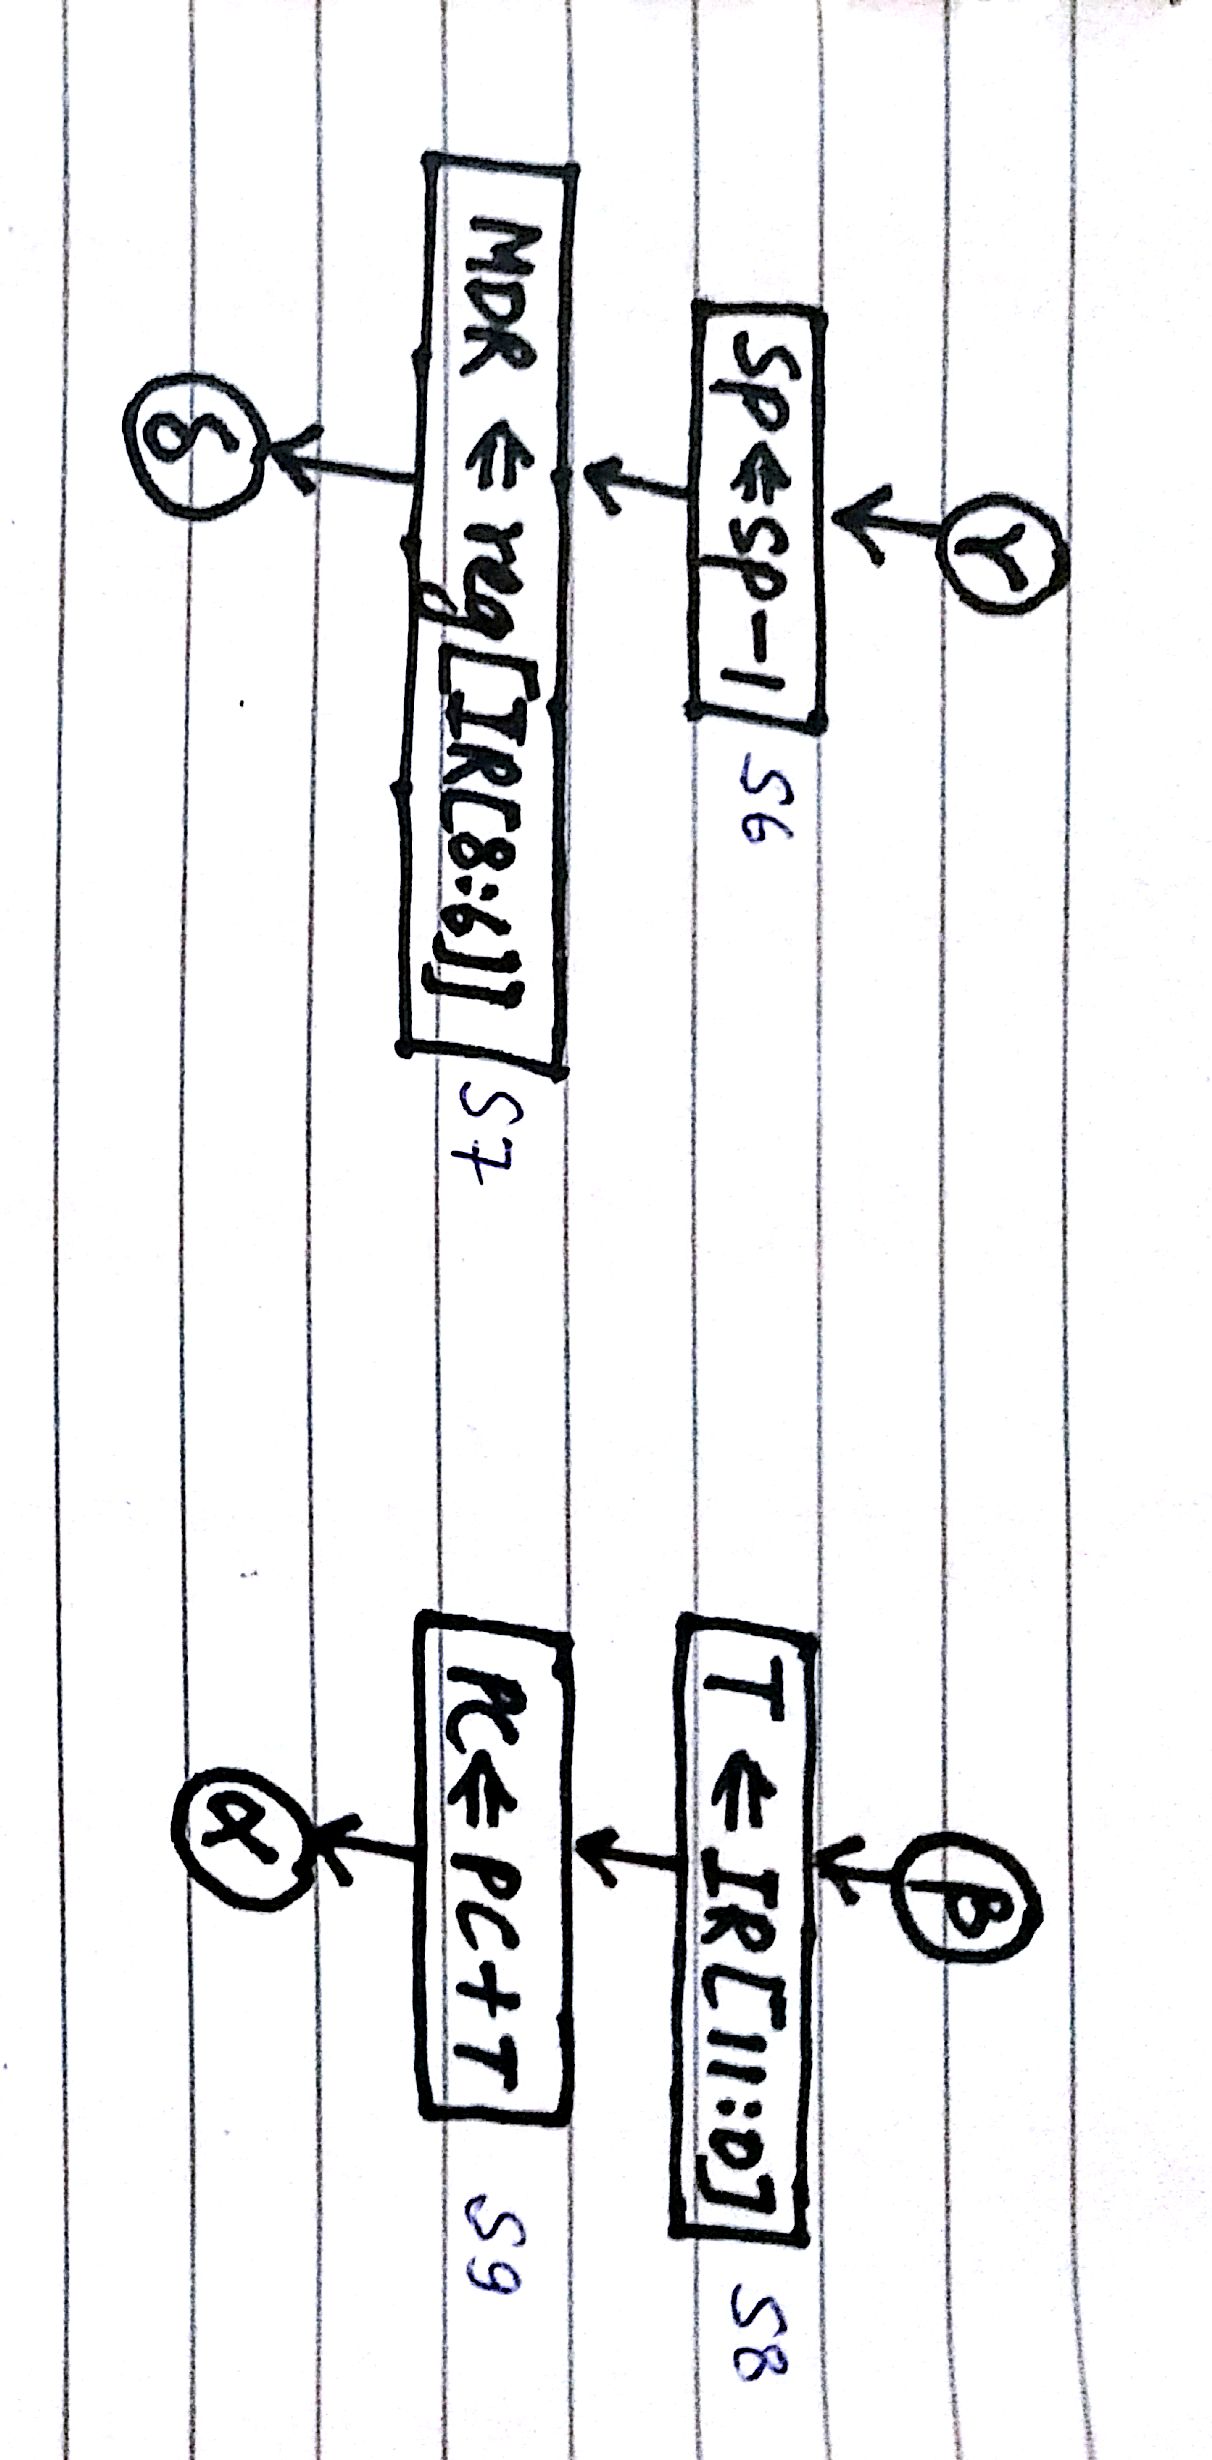 γ
SP⇐SP-1 S6
MDR ⇐ reg[IR[8:6]] S7
δ
β
T ⇐ IR[11:0] S8
PC⇐PC+T S9
α